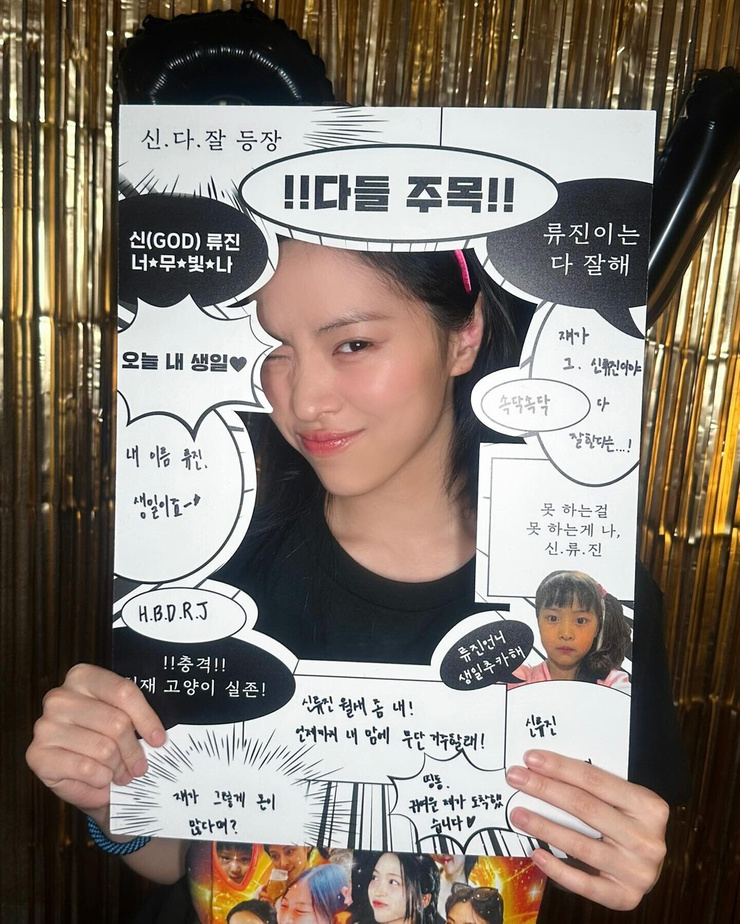 신.다.잘 등장
!!다들 주목!!
신(GOD) 류진
너★무★빛★나
류진이는
다 잘해
오늘 내 생일♥
쟤가
그. 신류진이야
속닥속닥
다
잘한다는...!
내 이름 류진.
생일이죠~
못 하는걸
못 하는게 나,
신.류.진
H.B.D.R.J
류진언니
생일추카해
!!충격!!
재 고양이 실존!
신류진 월세 좀 내!
언제까지 내 맘에 무단 거주할래!
신류진
쟤가 그렇게 돈이
많다며?
띵동.
귀여운 제가 도착했
습니다♥